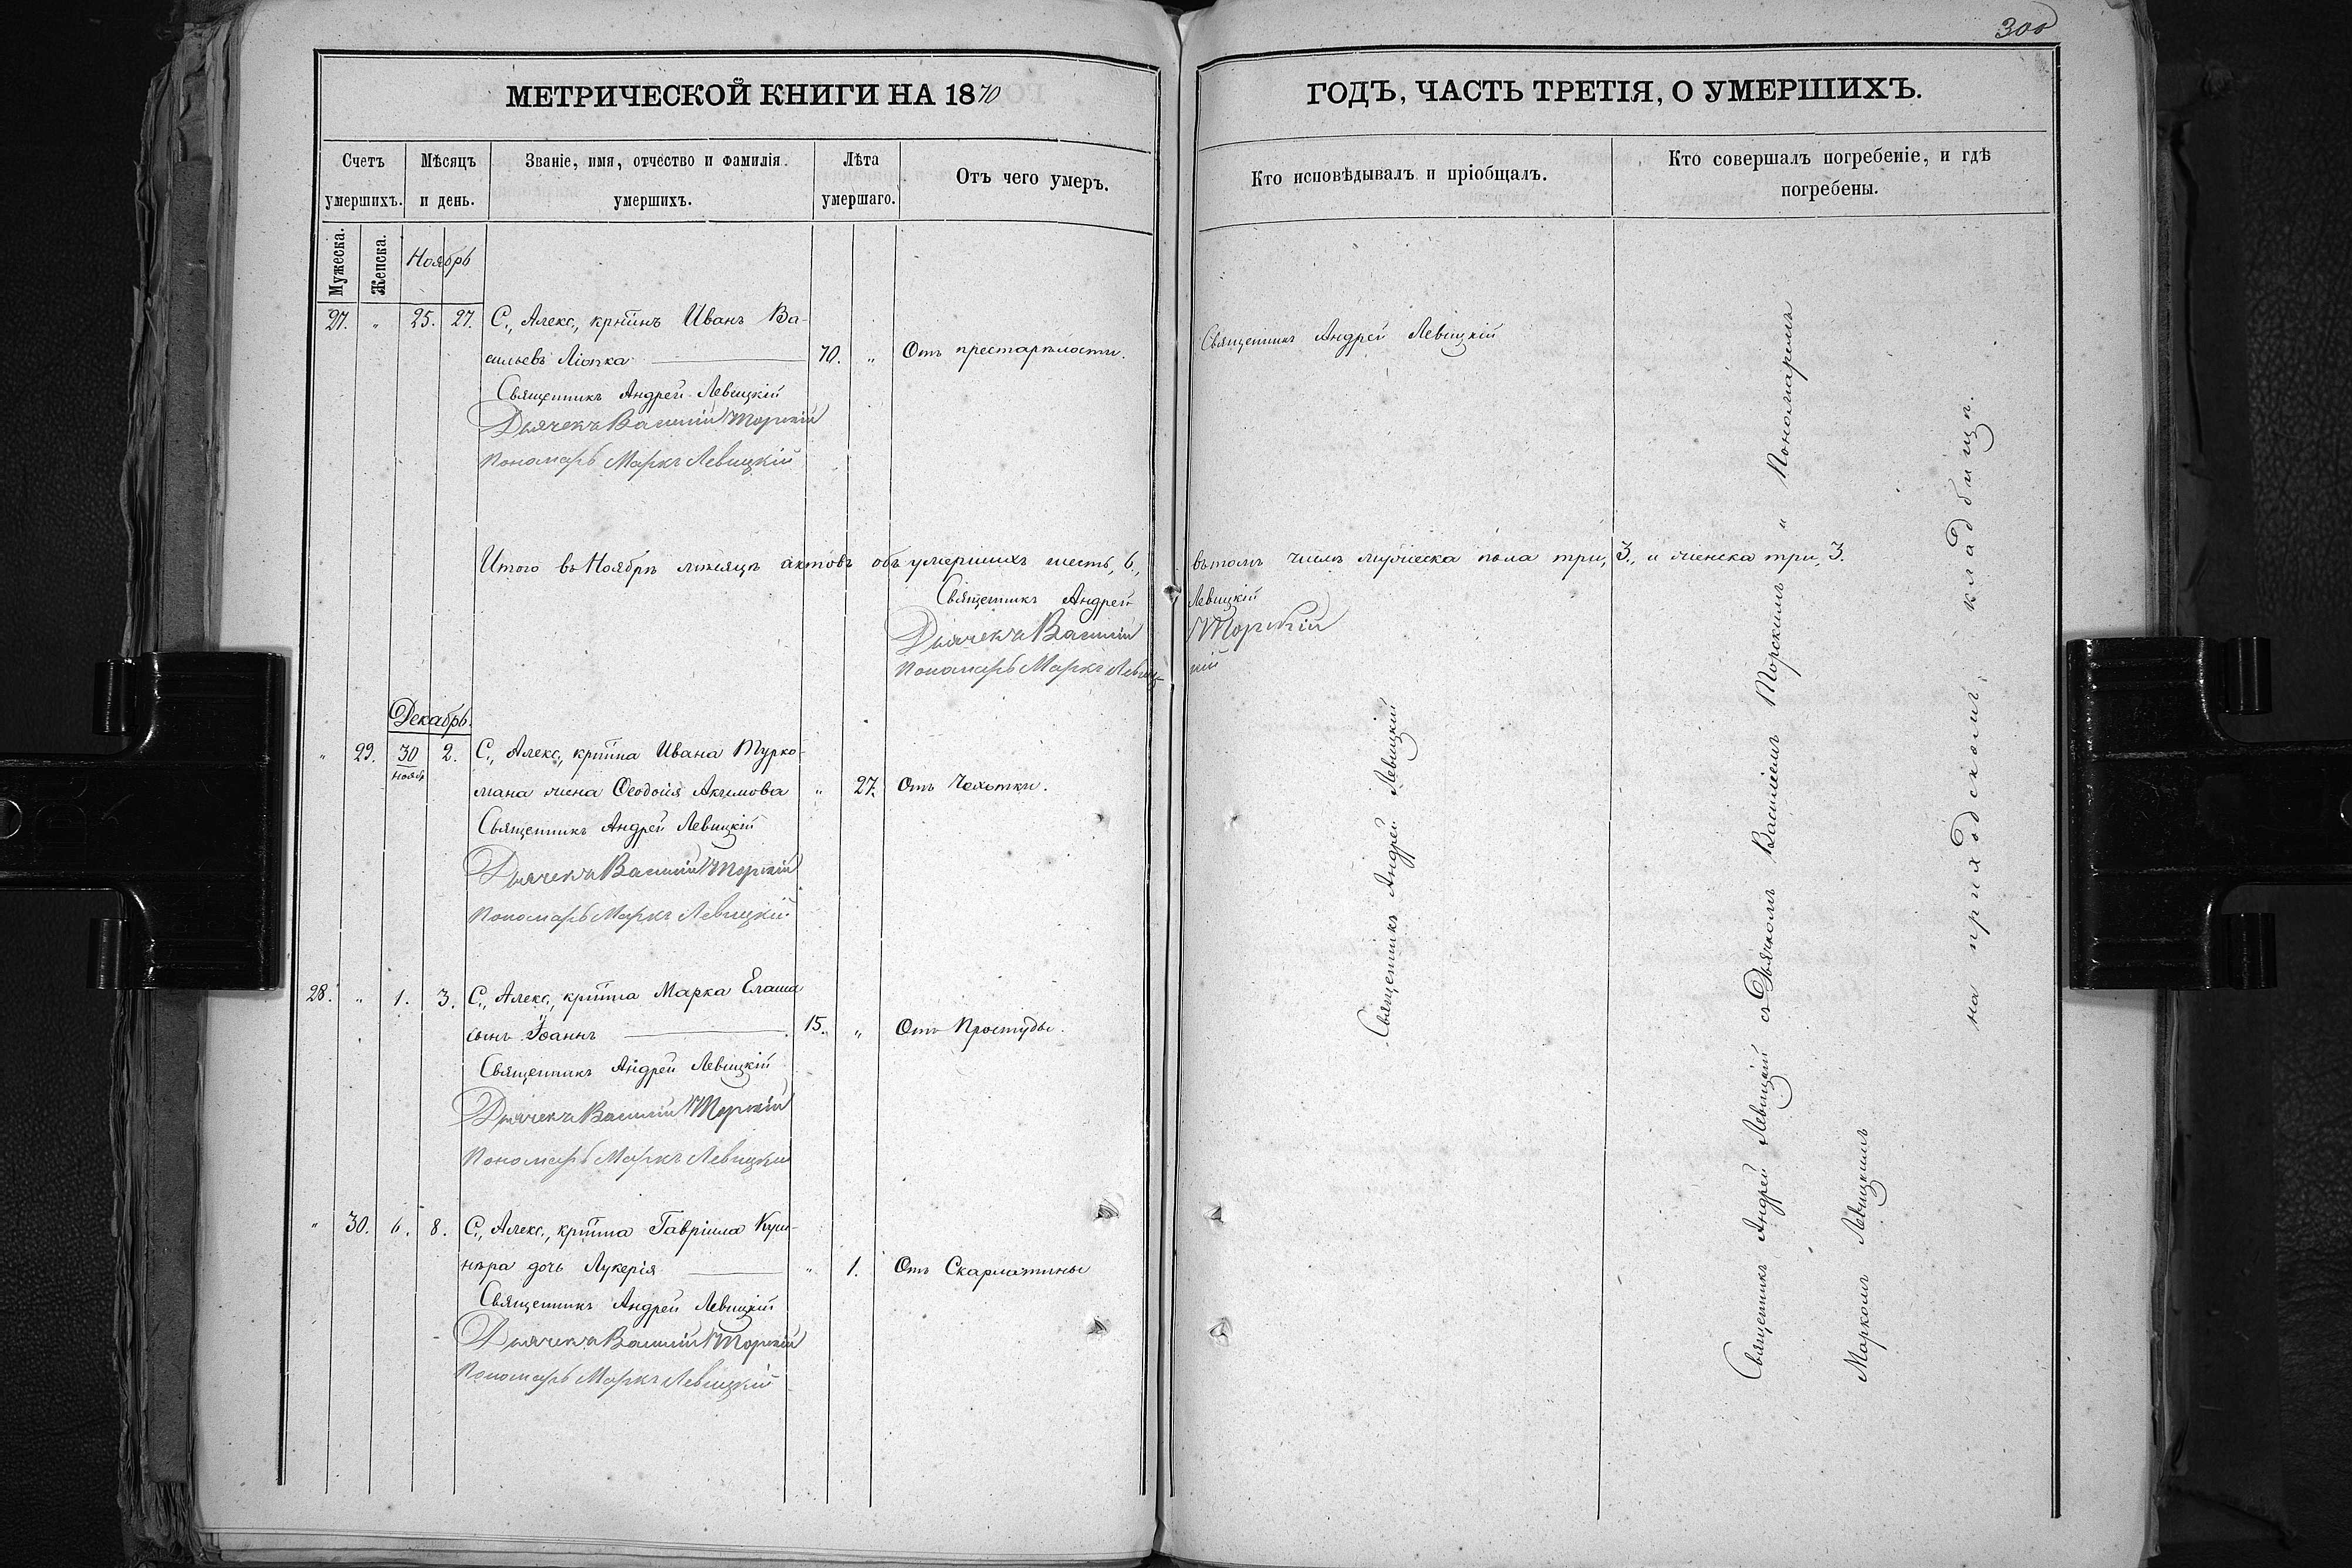 300
МЕТРИЧЕСКОЙ КНИГИ НА 1870
ГОДЪ, ЧАСТЬ ТРЕТІЯ, О УМЕРШИХЪ.
Счетъ умершихъ.
Мѣсяцъ и день.
Званіе, имя, отчество и фамилія умершихъ.
Лѣта умершаго.
Отъ чего умеръ.
Кто исповѣдывалъ и пріобщалъ.
Кто совершалъ погребеніе, и гдѣ погребены.
Мужеска.
Женска.
Ноябрь
27. " 25. 27. С., Алекс., крнтинъ Иванъ Ва-
сильевъ 70. " Отъ престарѣлости.
Священникъ Андрей Левицкій
Священникъ Андрей Левицкій
Дьячекъ Василій Торскій
Пономарь Маркъ Левицкій
Итого въ Ноябрѣ мѣсяцѣ актовъ объ умершихъ шесть, 6., въ томъ числѣ мужеска пола три, 3., и женска три, 3.
Священникъ Андрей Левицкій
Дьячекъ Василій Торскій
Пономарь Маркъ Левицкій
Декабрь.
" 29. 30 Нояб. 2. С., Алекс., крнтина Ивана Турко-
мана жена Ѳеодосія Акимова " 27. Отъ Чахотки.
Священникъ Андрей Левицкій
Дьячекъ Василій Торскій
Пономарь Маркъ Левицкій
28. " 1. 3. С., Алекс., крнтина Марка Елаша
сынъ Іоаннъ 15. " Отъ Простуды.
Священникъ Андрей Левицкій
Дьячекъ Василій Торскій
Пономарь Маркъ Левицкій
" 30. 6. 8. С., Алекс., крнтина Гавріила Куш-
нѣра дочь Лукерія " 1. Отъ Скарлатины
Священникъ Андрей Левицкій
Дьячекъ Василій Торскій
Пономарь Маркъ Левицкій
Священникъ Андрей Левицкій
Священникъ Андрей Левицкій съ Дьячкомъ Василіемъ Торскимъ и Пономаремъ
Маркомъ Левицкимъ
на приходскомъ кладбищѣ.